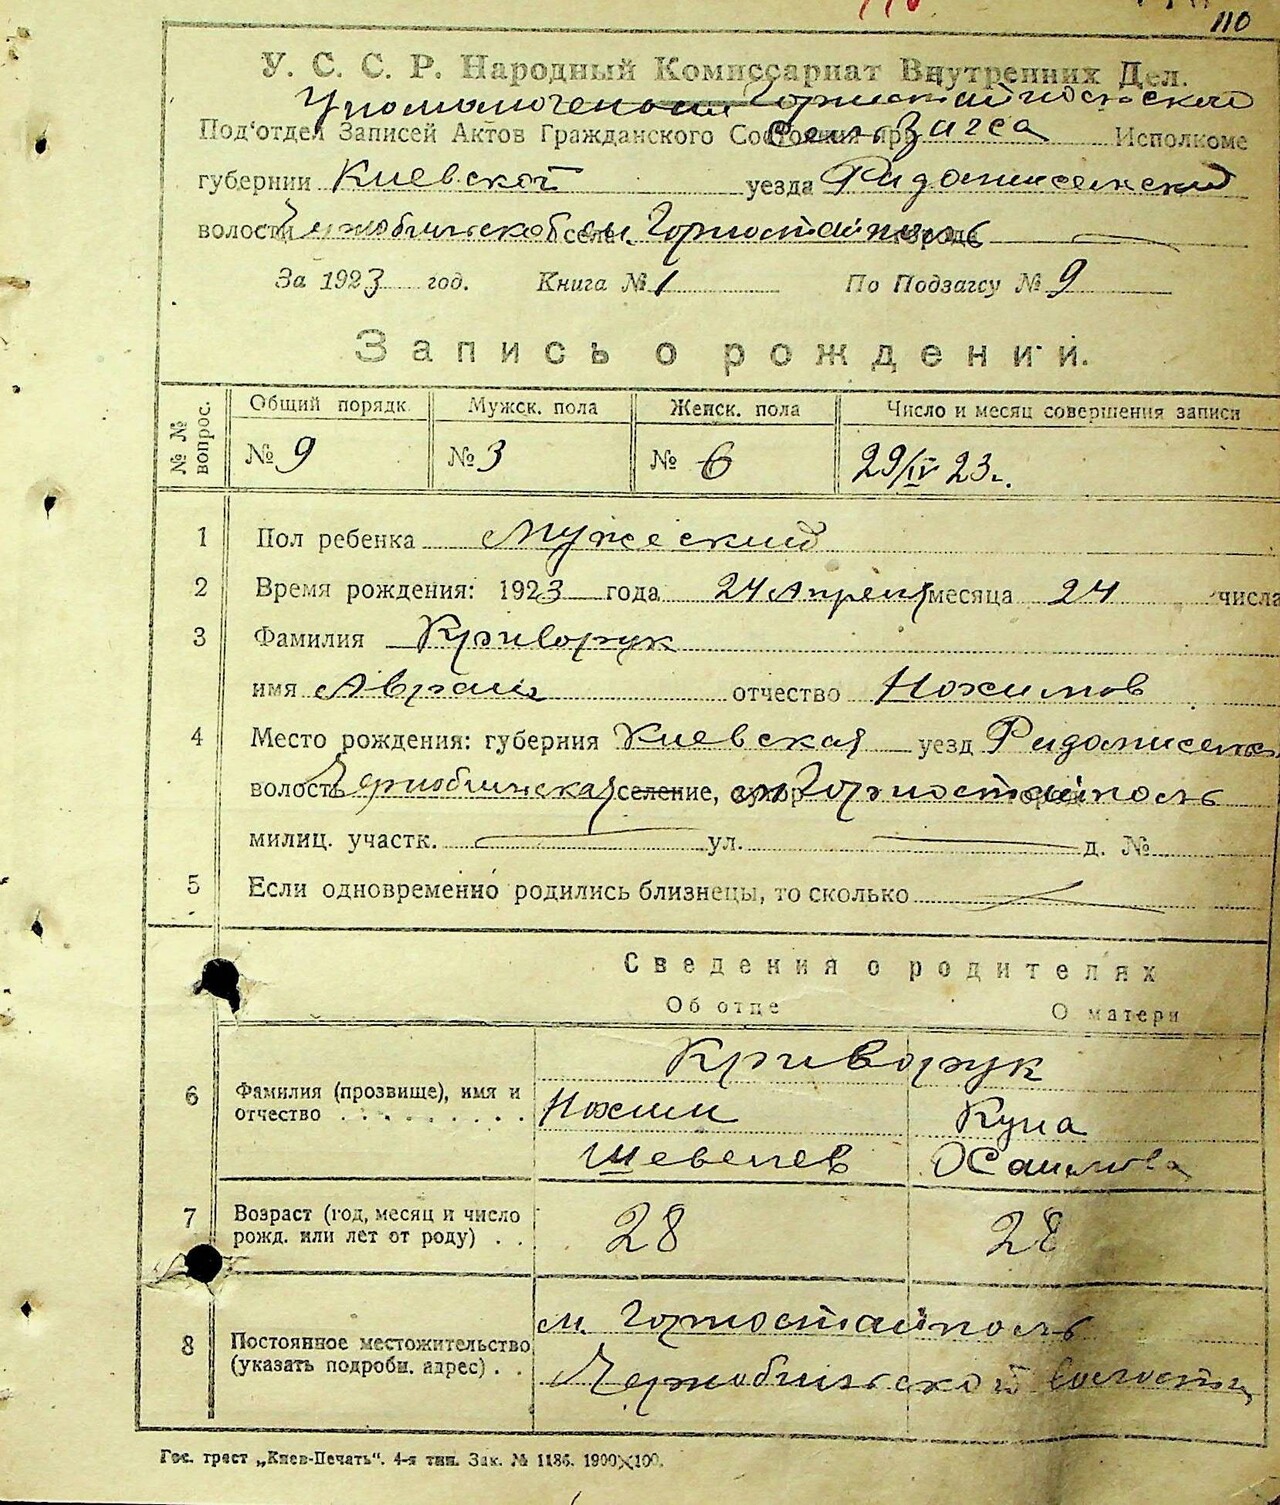 110
У. С. С. Р. Народный Комиссариат Внутренних Дел.
Горностайпольской
Под'отдел Записей Актов Гражданского Состояния при Сель Загса Исполкоме
губернии Киевской уезда Радомисельский
волости Чернобыльской села м. Горностайполь города
За 1923 год. Книга № 1 По Подзагсу № 9
Запись о рождении.
№ № вопрос. Общий порядк. Мужск. пола Женск. пола Число и месяц совершения записи
№ 9 № 3 № 6 29/IV 23 г.
1 Пол ребенка Мужеский
2 Время рождения: 1923 года 24 Апреля месяца 24 числа
3 Фамилия Криворук
имя Аврам отчество Нохимов
4 Место рождения: губерния Киевская уезд Радомисельск
волость Чернобильская селение, хутор м. Горностайполь
милиц. участк. ул. д. №
5 Если одновременно родились близнецы, то сколько
Сведения о родителях
Об отце О матери
Криворук
6 Фамилия (прозвище), имя и
отчество . . . . . . . . . Нохим Куна
Шевелев
7 Возраст (год, месяц и число
рожд. или лет от роду) . . 28 28
м. Горностайполь
8 Постоянное местожительство
(указать подробн. адрес) . . Чернобильской волости
Гос. трест „Киев-Печать“. 4-я тип. Зак. № 1186. 1900×100.